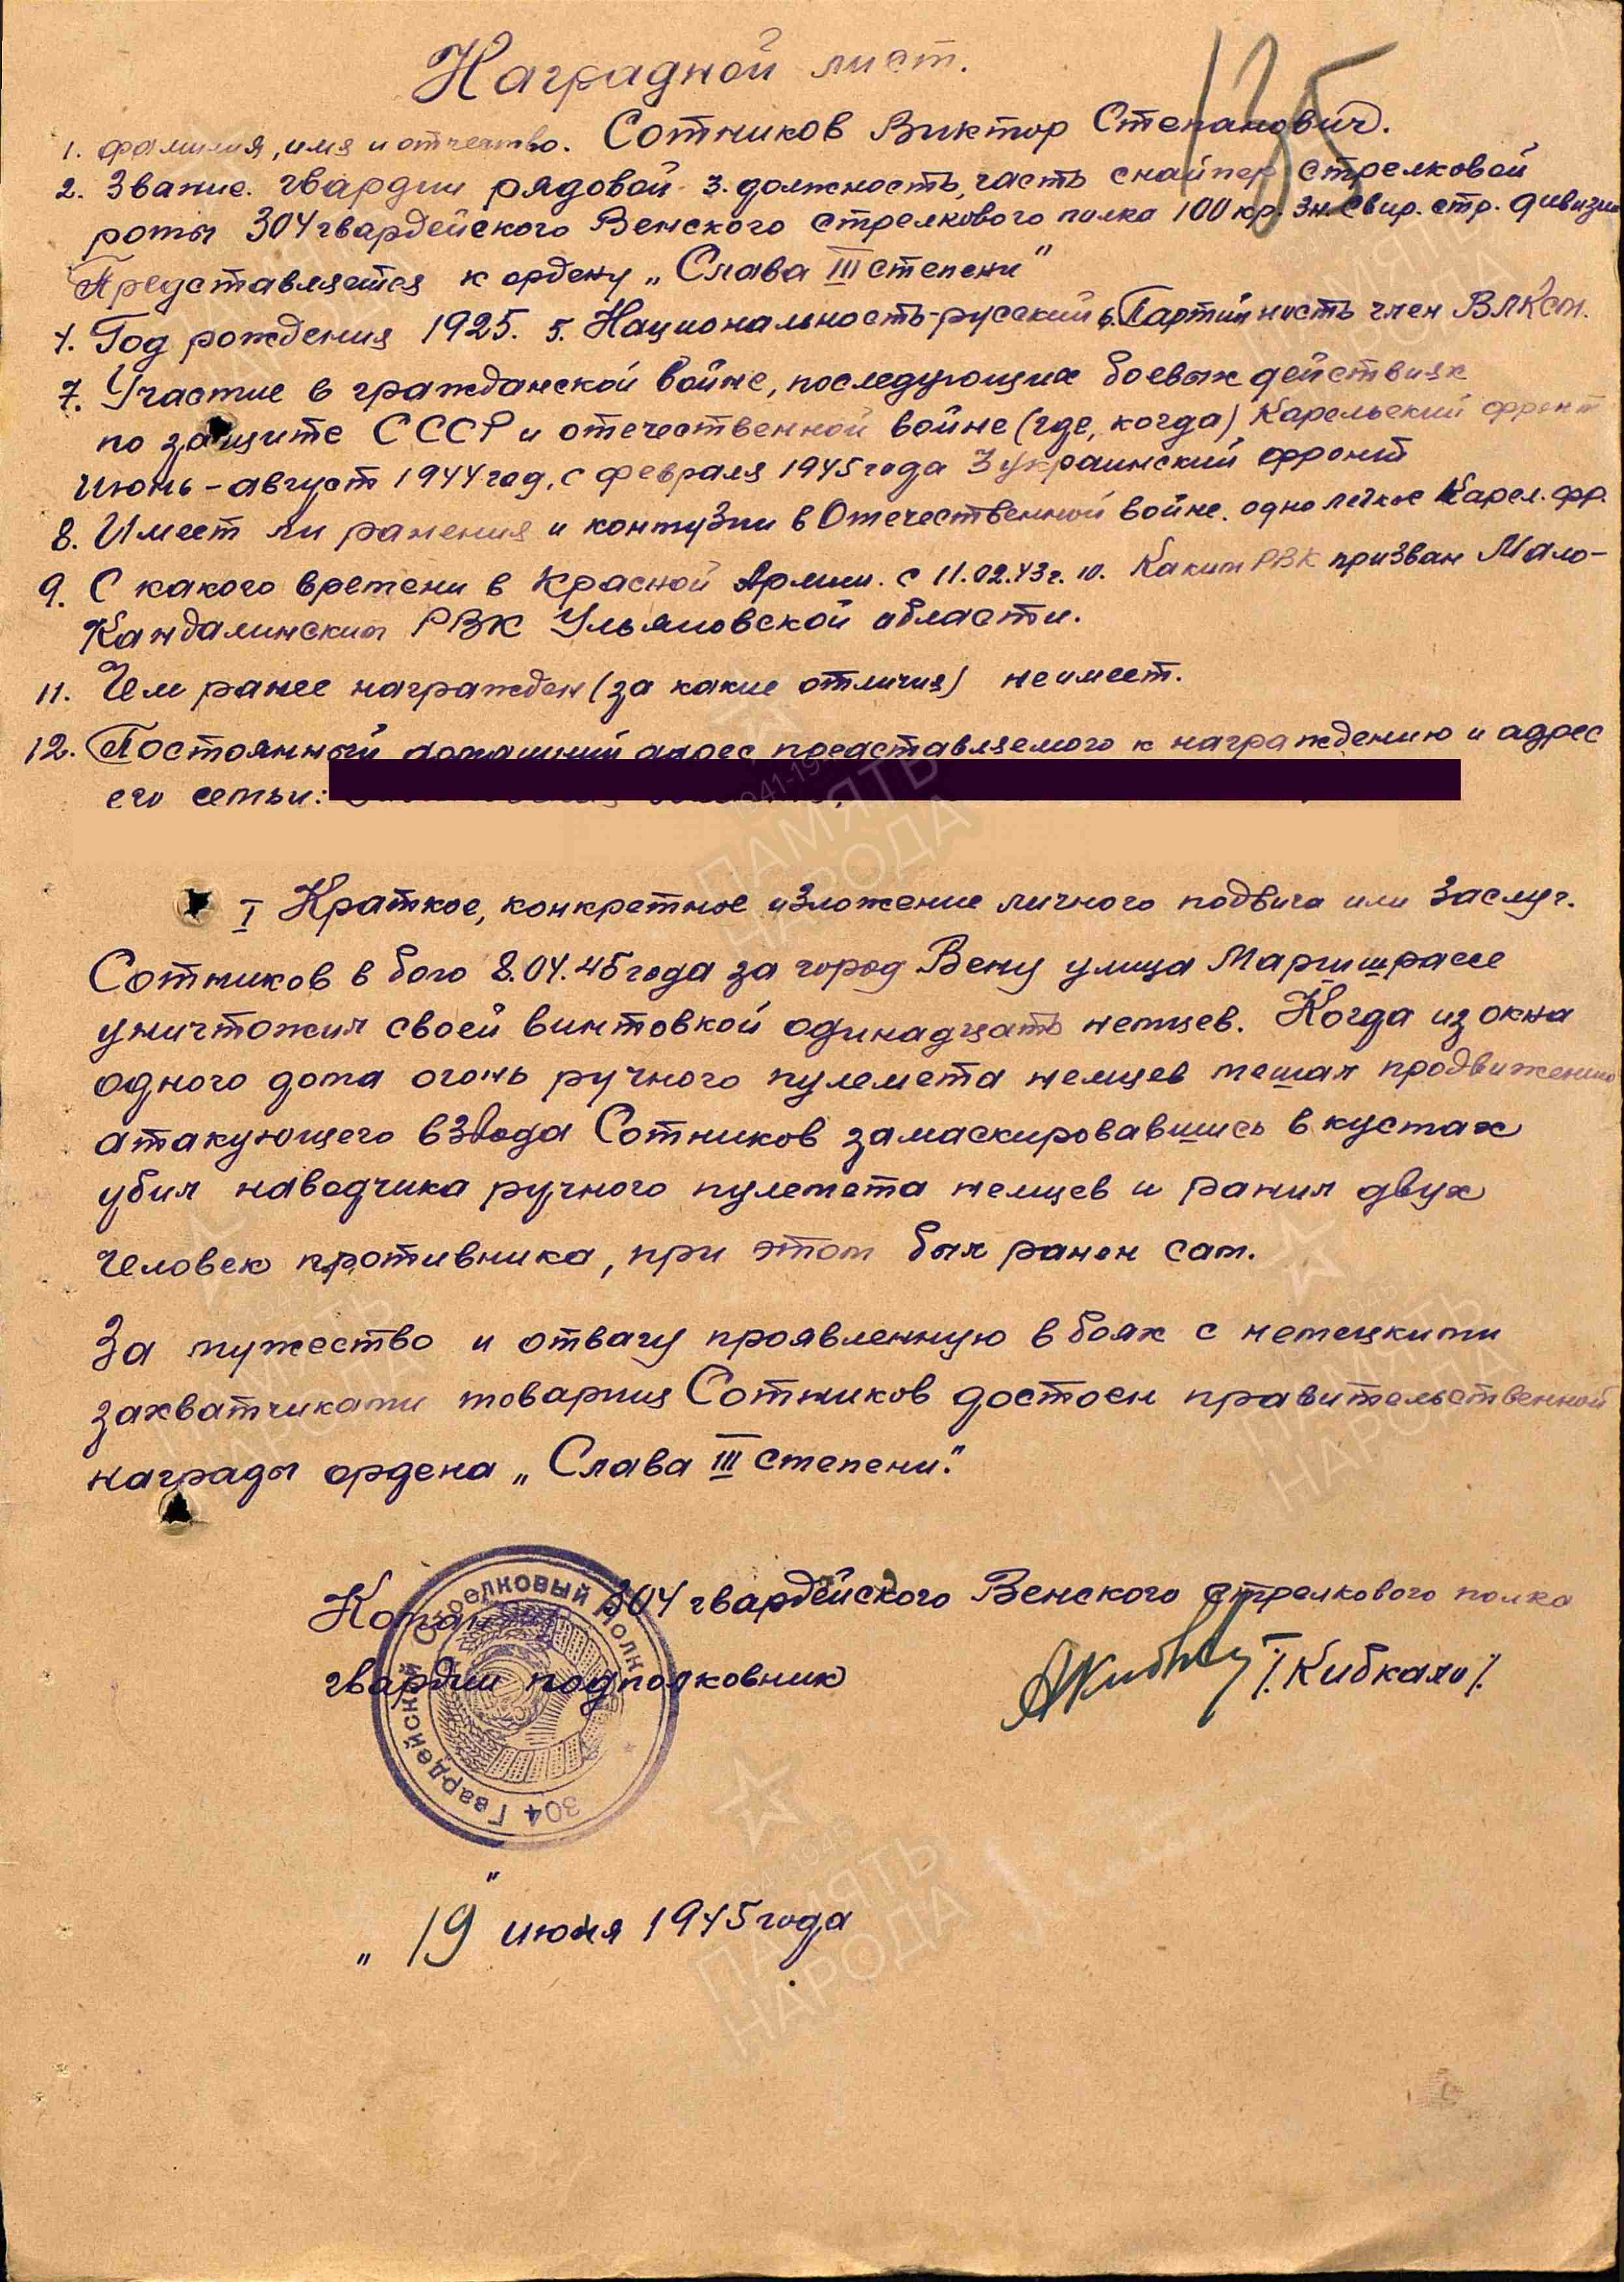 135
Наградной лист.
1. фамилия, имя и отчество. Сотников Виктор Степанович.
2. Звание. гвардии рядовой 3. должность, часть снайпер стрелковой
роты 304 гвардейского Венского стрелкового полка 100 кр. Зн. Свир. стр. дивизии
Представляется к ордену „Слава III степени"
4. Год рождения 1925. 5. Национальность-русский 6. Партийность член ВЛКСМ.
7. Участие в гражданской войне, последующих боевых действиях
по защите СССР и отечественной войне (где, когда) Карельский фронт
Июнь-август 1944 год, с февраля 1945 года 3 украинский фронт
8. Имеет ли ранения и контузии в Отечественной войне. одно легкое Карел. фр.
9. С какого времени в Красной Армии. с 11.02.43 г. 10. Каким РВК призван Мало-
Кандалинским РВК Ульяновской области.
11. Чем ранее награжден (за какие отличия) не имеет.
12. Постоянный домашний адрес представляемого к награждению и адрес
его семьи:
I Краткое, конкретное изложение личного подвига или заслуг.
Сотников в бою 8.04.45 года за город Вену улица Маргишрассе
уничтожил своей винтовкой одинадцать немцев. Когда из окна
одного дома огонь ручного пулемета немцев мешал продвижению
атакующего взвода Сотников замаскировавшись в кустах
убил наводчика ручного пулемета немцев и ранил двух
человек противника, при этом был ранен сам.
За мужество и отвагу проявленную в боях с немецкими
захватчиками товарищ Сотников достоен правительственной
награды ордена „Слава III степени".
304 гвардейского Венского стрелкового полка
гвардии подполковник /Кибкало/
304 Гвардейский Стрелковый Полк
„19" июня 1945 года
ПАМЯТЬ НАРОДА